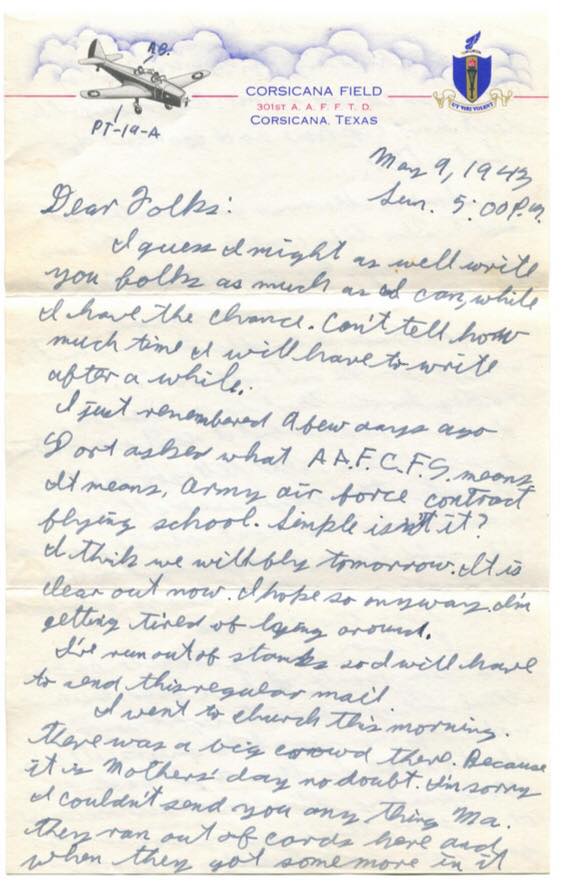 A.B.
PT-19-A
CORSICANA FIELD
301ST A. A. F. F. T. D.
CORSICANA, TEXAS
UT VIRI VOLENT
May 9, 1943
Sun. 5:00 P.M.
Dear Folks:
I guess I might as well write
you folks as much as I can, while
I have the chance. Can't tell how
much time I will have to write
after a while.
I just remembered a few days ago
asked what A.A.F.C.F.S. means.
It means, Army air force contract
flying school. Simple isn't it?
I think we will fly tomorrow. It is
clear out now. I hope so anyway. I'm
getting tired of laying around.
I've run out of stamps so I will have
to send this regular mail.
I went to church this morning.
there was a big crowd there. Because
it is Mothers' day no doubt. I'm sorry
I couldn't send you any thing Ma.
they ran out of cards here and
when they got some more in it